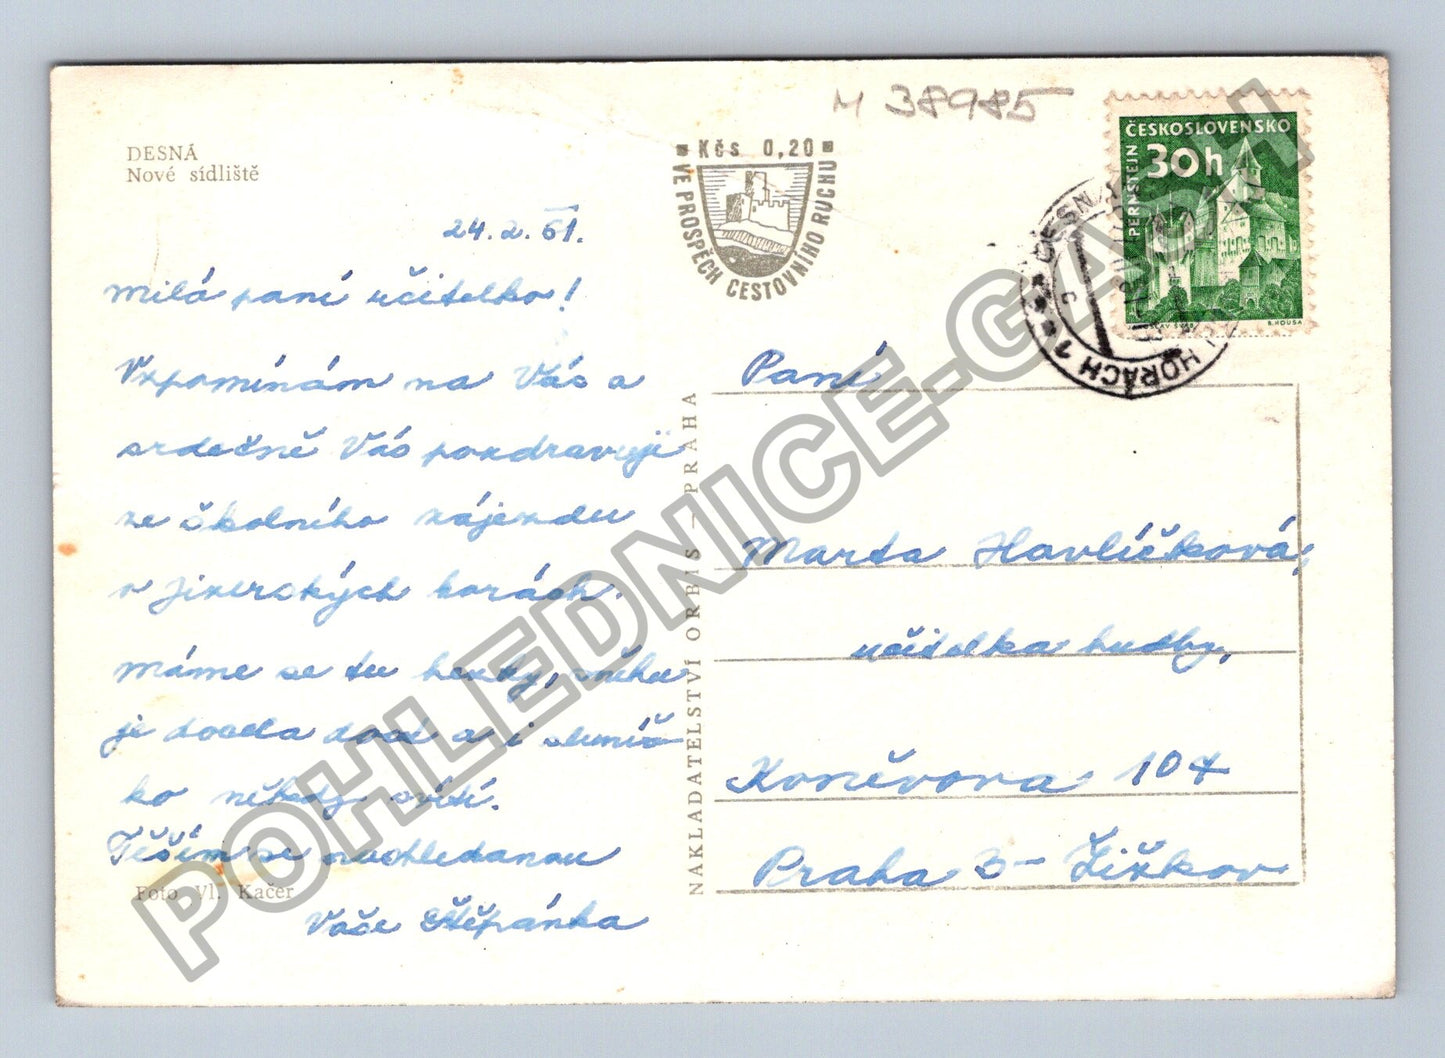 DESNÁ
Nové sídliště
M 38985
Kčs 0,20
VE PROSPĚCH CESTOVNÍHO RUCHU
ČESKOSLOVENSKO
30h
PERNŠTEJN
B. HOUSA
DESNÁ
HORÁCH 1
24.2.61.
Milá paní učitelko!
Vzpomínám na Vás a
srdečně Vás pozdravuji
ze školního zájezdu
v Jizerských horách.
Máme se tu hezky, sněhu
je docela dost a i sluníč-
ko někdy svítí.
Těším se nashledanou
Vaše Štěpánka
Foto Vl. Kačer
NAKLADATELSTVÍ ORBIS – PRAHA
Paní
Marta Havlíčková,
učitelka hudby,
Koněvova 104
Praha 3 - Žižkov
POHLEDNICE-GASH